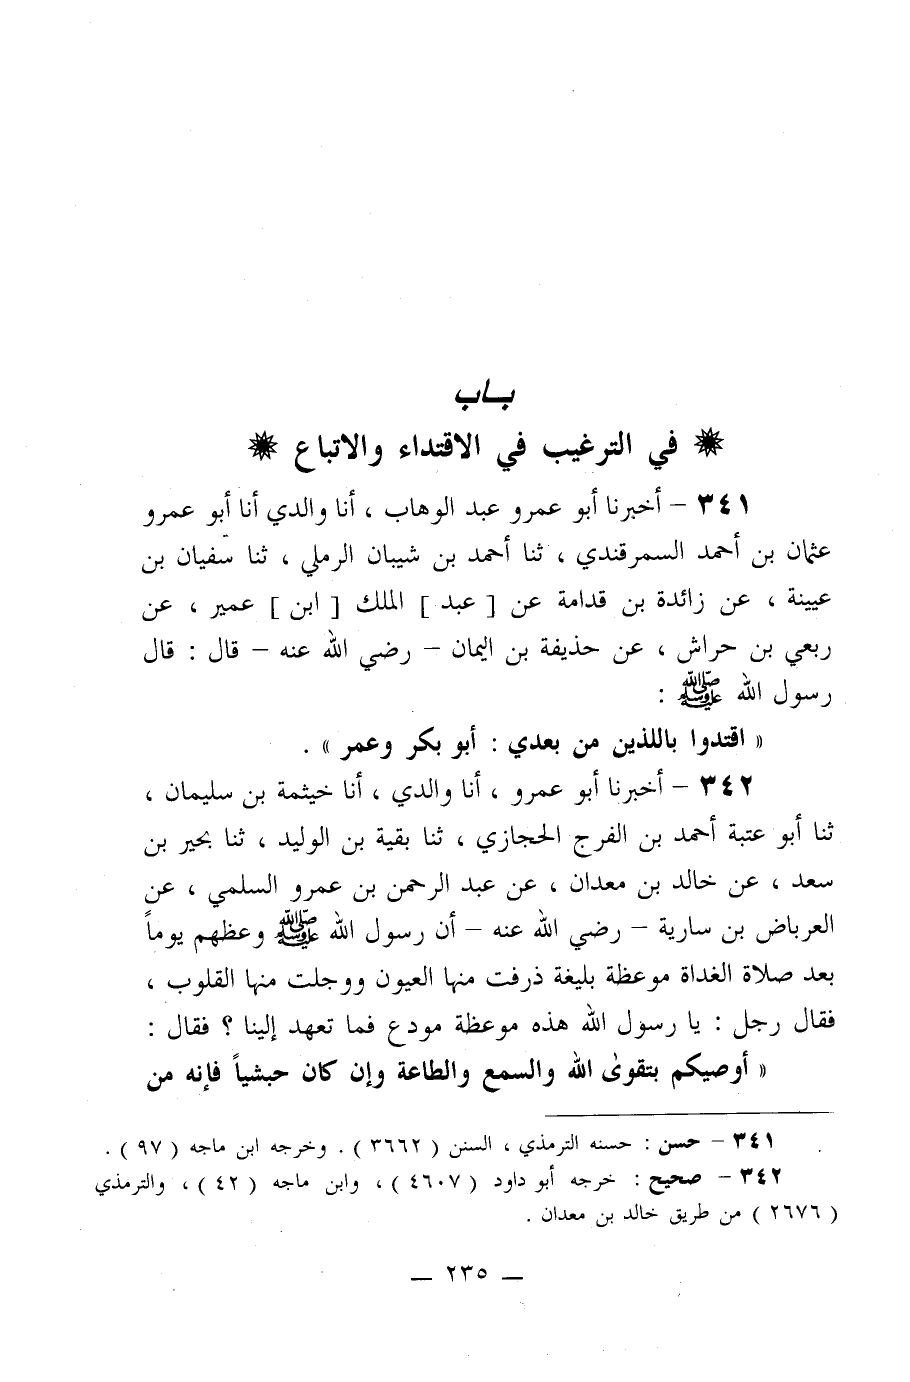 بـاب
في الترغيب في الاقتداء والاتباع
٣٤١ – أخبرنا أبو عمرو عبد الوهاب ، أنا والدي أنا أبو عمرو
عثمان بن أحمد السمرقندي ، ثنا أحمد بن شيبان الرملي ، ثنا سفيان بن
عيينة ، عن زائدة بن قدامة عن [ عبد ] الملك [ ابن ] عمير ، عن
ربعي بن حراش ، عن حذيفة بن اليمان – رضي الله عنه – قال : قال
رسول الله ﷺ :
« اقتدوا باللذين من بعدي : أبو بكر وعمر » .
٣٤٢ – أخبرنا أبو عمرو ، أنا والدي ، أنا خيثمة بن سليمان ،
ثنا أبو عتبة أحمد بن الفرج الحجازي ، ثنا بقية بن الوليد ، ثنا بحير بن
سعد ، عن خالد بن معدان ، عن عبد الرحمن بن عمرو السلمي ، عن
العرباض بن سارية – رضي الله عنه – أن رسول الله ﷺ وعظهم يوماً
بعد صلاة الغداة موعظة بليغة ذرفت منها العيون ووجلت منها القلوب ،
فقال رجل : يا رسول الله هذه موعظة مودع فما تعهد إلينا ؟ فقال :
« أوصيكم بتقوىٰ الله والسمع والطاعة وإن كان حبشياً فإنه من
٣٤١ – حسن : حسنه الترمذي ، السنن ( ٣٦٦٢ ) . وخرجه ابن ماجه ( ٩٧ ) .
٣٤٢ – صحيح : خرجه أبو داود ( ٤٦٠٧ ) ، وابن ماجه ( ٤٢ ) ، والترمذي
( ٢٦٧٦ ) من طريق خالد بن معدان .
– ٢٣٥ –